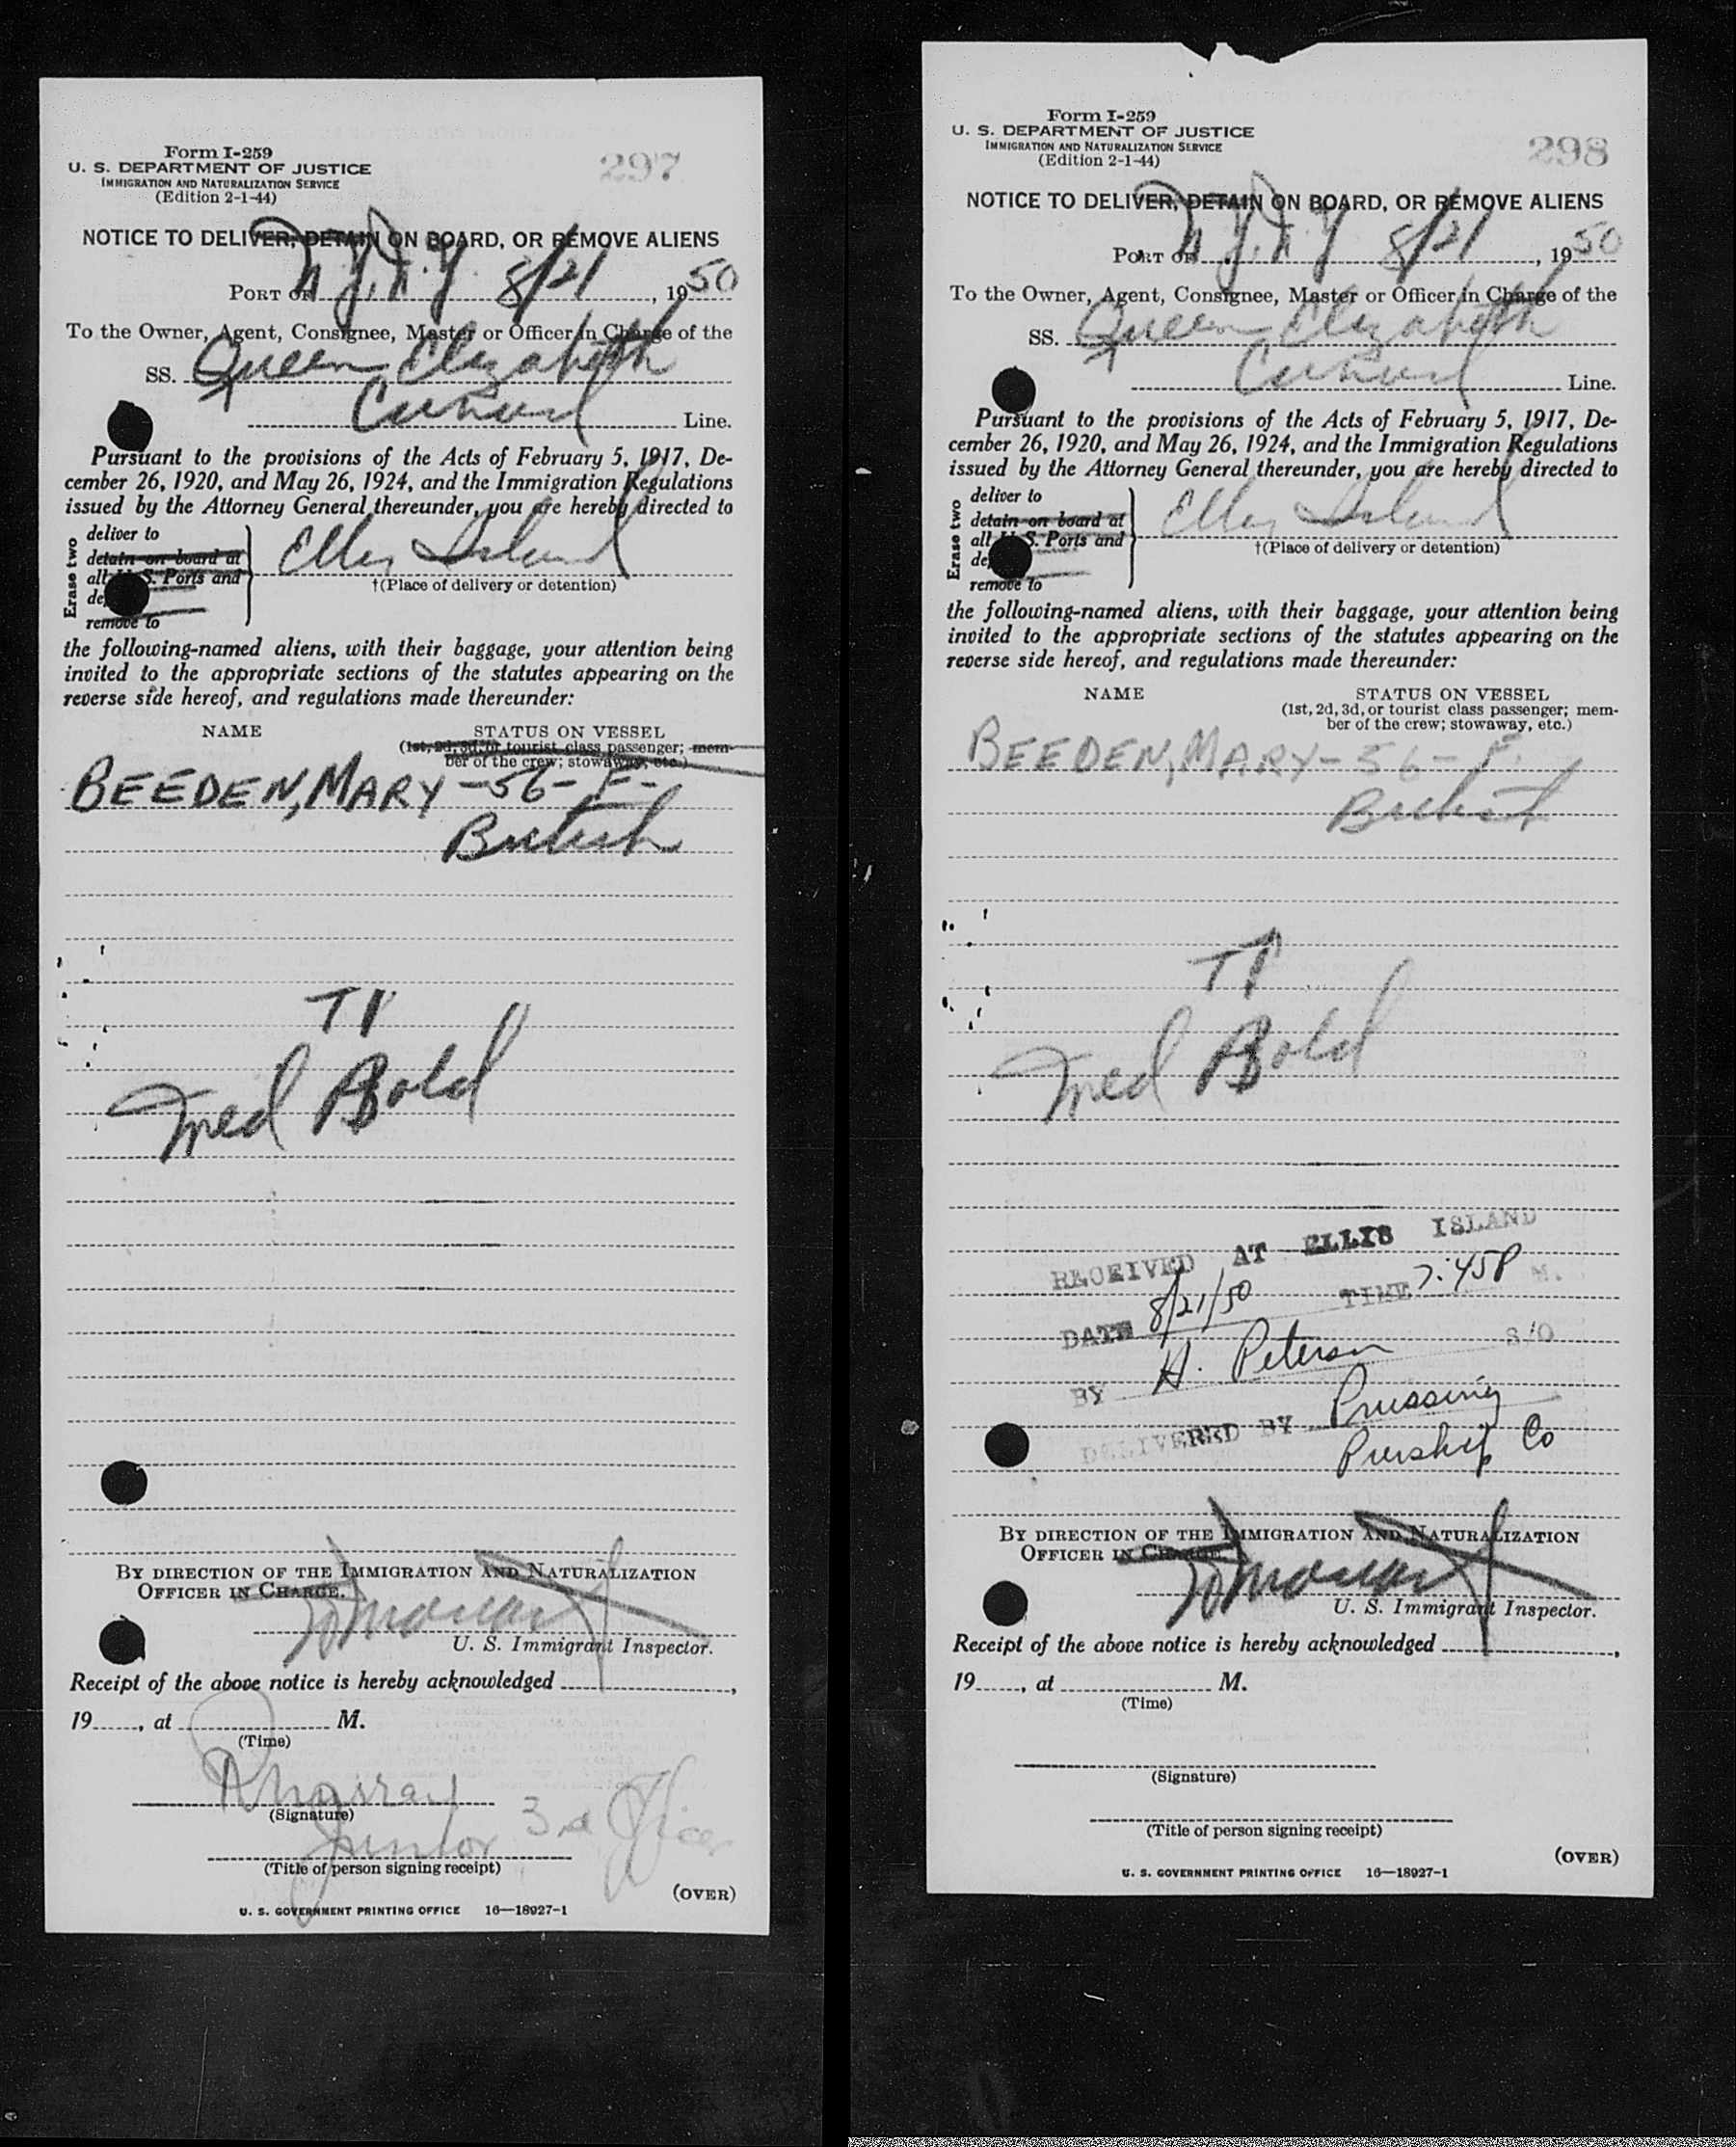 Form I-259
U. S. DEPARTMENT OF JUSTICE
IMMIGRATION AND NATURALIZATION SERVICE
(Edition 2-1-44)
297
NOTICE TO DELIVER, DETAIN ON BOARD, OR REMOVE ALIENS
PORT OF N.Y.N.Y. 8/21, 1950
To the Owner, Agent, Consignee, Master or Officer in Charge of the
SS. Queen Elizabeth
Cunard Line.
Pursuant to the provisions of the Acts of February 5, 1917, De-
cember 26, 1920, and May 26, 1924, and the Immigration Regulations
issued by the Attorney General thereunder, you are hereby directed to
Erase two
deliver to
detain on board at
all U. S. Ports and
de
remove to
Ellis Island
†(Place of delivery or detention)
the following-named aliens, with their baggage, your attention being
invited to the appropriate sections of the statutes appearing on the
reverse side hereof, and regulations made thereunder:
NAME STATUS ON VESSEL
(1st, 2d, 3d, or tourist class passenger; mem-
ber of the crew; stowaway, etc.)
BEEDEN, MARY - 56 - F -
British
Med Hold
BY DIRECTION OF THE IMMIGRATION AND NATURALIZATION
OFFICER IN CHARGE.
U. S. Immigrant Inspector.
Receipt of the above notice is hereby acknowledged ,
19 , at M.
(Time)
(Signature)
Junior 3rd Officer
(Title of person signing receipt)
(OVER)
U. S. GOVERNMENT PRINTING OFFICE 16—18927-1
Form I-259
U. S. DEPARTMENT OF JUSTICE
IMMIGRATION AND NATURALIZATION SERVICE
(Edition 2-1-44)
298
NOTICE TO DELIVER, DETAIN ON BOARD, OR REMOVE ALIENS
PORT OF N.Y.N.Y 8/21, 1950
To the Owner, Agent, Consignee, Master or Officer in Charge of the
SS. Queen Elizabeth
Cunard Line.
Pursuant to the provisions of the Acts of February 5, 1917, De-
cember 26, 1920, and May 26, 1924, and the Immigration Regulations
issued by the Attorney General thereunder, you are hereby directed to
Erase two
deliver to
detain on board at
all U. S. Ports and
de
remove to
Ellis Island
†(Place of delivery or detention)
the following-named aliens, with their baggage, your attention being
invited to the appropriate sections of the statutes appearing on the
reverse side hereof, and regulations made thereunder:
NAME STATUS ON VESSEL
(1st, 2d, 3d, or tourist class passenger; mem-
ber of the crew; stowaway, etc.)
BEEDEN, MARY - 56 - F.
British
Med Hold
RECEIVED AT ELLIS ISLAND
DATE 8/21/50 TIME 7:45P M.
BY H. Peterson S/O
DELIVERED BY Prussing
Pinship Co
BY DIRECTION OF THE IMMIGRATION AND NATURALIZATION
OFFICER IN CHARGE
U. S. Immigrant Inspector.
Receipt of the above notice is hereby acknowledged ,
19 , at M.
(Time)
(Signature)
(Title of person signing receipt)
(OVER)
U. S. GOVERNMENT PRINTING OFFICE 16—18927-1